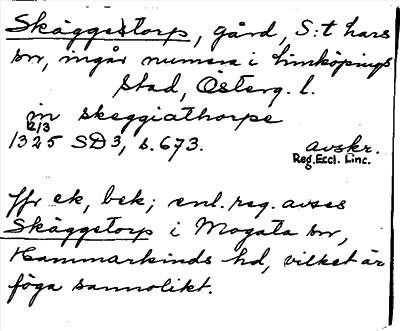 Skäggestorp, gård, S:t Lars
sn, ingår numera i Linköpings
stad, Österg. l.
in skeggiathorpe
12/3
1325 SD3, s. 673. avskr.
Reg. Eccl. Linc.
Jfr ek, bek; enl. reg. avses
Skäggetorp i Mogata sn,
Hammarkinds hd, vilket är
föga sannolikt.